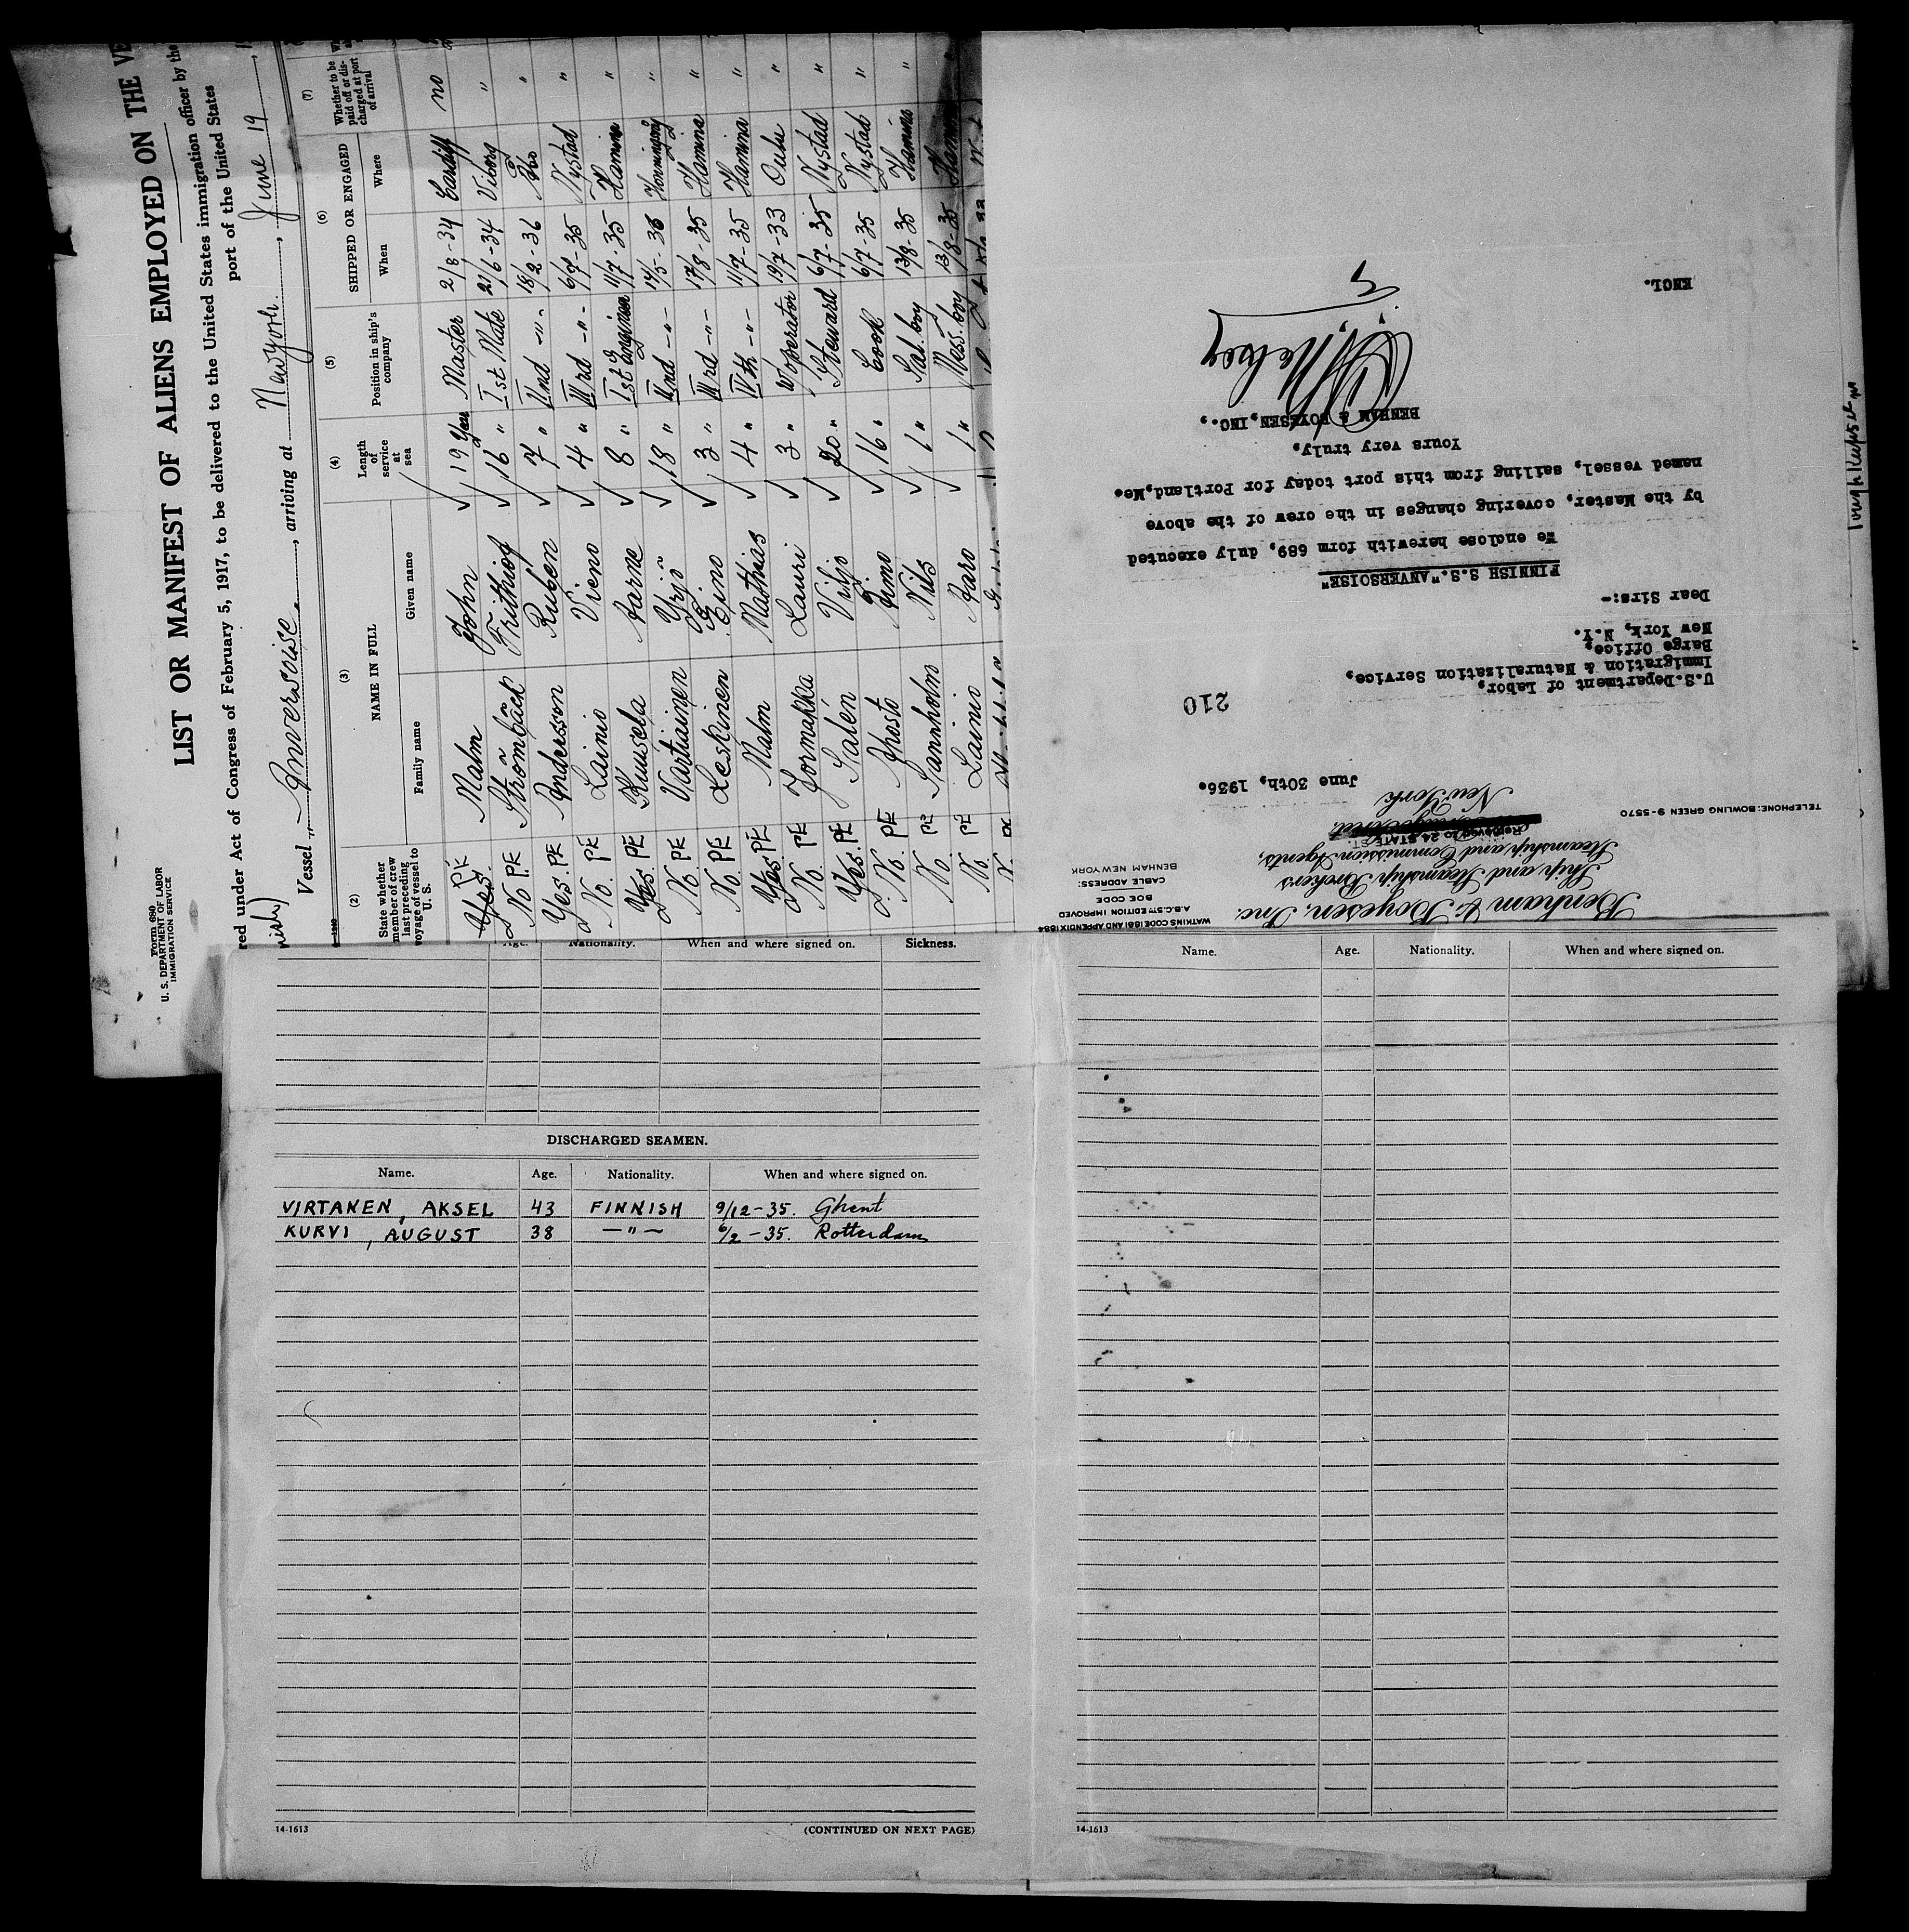 Form 680
U. S. DEPARTMENT OF LABOR
IMMIGRATION SERVICE
LIST OR MANIFEST OF ALIENS EMPLOYED ON THE VE
red under Act of Congress of February 5, 1917, to be delivered to the United States immigration officer by the
port of the United States
Vessel Anversoise, arriving at Newyork, June 19
(2) (3) (4) (5) (6) (7)
State whether member of crew last preceding voyage of vessel to U. S.
NAME IN FULL
Family name Given name
Length of service at sea
Position in ship's company
SHIPPED OR ENGAGED
When Where
Whether to be paid off or discharged at port of arrival
Yes. PE Malm John √ 19 Year Master 2/8-34 Cardiff no
No PE Strömbäck Frithiof √ 16 " Ist Mate 21/6-34 Viborg "
Yes. PE Andersson Ruben √ 7 " IInd -"- 18/2-36 "
No. PE Lainio Vieno √ 4 " IIIrd -"- 6/7-35 Nystad "
Yes. PE Kuusela Aarne √ 8 " Ist Engineer 11/7-35 Hamina "
No PE Vartiainen Yrjö √ 18 " IInd -"- "
No. PE Leskinen Eino √ 3 " IIIrd -"- 17/8-35 Hamina "
Yes. PE Malm Matthias √ 4 " IVth -"- 11/7-35 Hamina "
No. PE Jormakka Lauri √ 3 " W operator 19/7-33 Oulu "
Yes. PE Salén Viljo √ 20 " Steward 6/7-35 Nystad "
No. PE Ahosto √ 16 " Cook 6/7-35 Nystad "
No. PE Sannholm Nils √ 1 " Sal. boy 13/8-35 Hamina "
No. PE Lainio Aaro √ 1 " Mess. boy 13/8-35 Hamina "
Benham & Boyesen, Inc.
Ship and Steamship Brokers
Steamship and Commission Agents,
Removed to 24 STATE ST.
New York
TELEPHONE: BOWLING GREEN 9-5570
WATKINS CODE 1881 AND APPENDIX 1884
A.B.C. 5TH EDITION IMPROVED
BOE CODE
CABLE ADDRESS:
BENHAM NEW YORK
June 30th, 1936.
210
U.S.Department of Labor,
Immigration & Naturalization Service,
Barge Office,
New York, N.Y.
Dear Sirs:-
FINNISH S.S."ANVERSOISE"
We enclose herewith form 689, duly executed
by the Master, covering changes in the crew of the above
named vessel, sailing from this port today for Portland,Me.
Yours very truly,
BENHAM & BOYESEN, INC.,
ENCL.
Age. Nationality. When and where signed on. Sickness.
DISCHARGED SEAMEN.
Name. Age. Nationality. When and where signed on.
VIRTANEN, AKSEL 43 FINNISH 9/12-35. Ghent
KURVI, AUGUST 38 —"— 6/2-35. Rotterdam
14-1613
(CONTINUED ON NEXT PAGE)
Name. Age. Nationality. When and where signed on.
14-1613